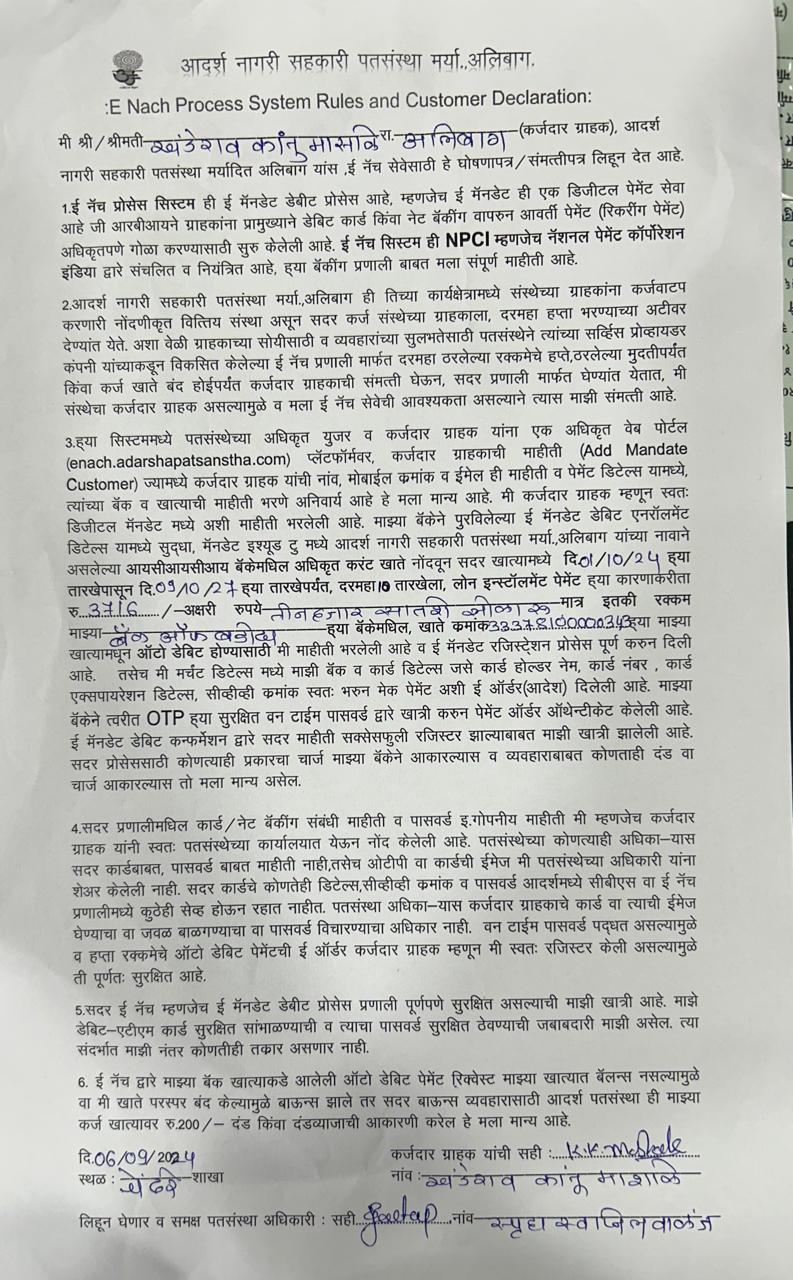 आदर्श नागरी सहकारी पतसंस्था मर्या.,अलिबाग.
:E Nach Process System Rules and Customer Declaration:
मी श्री/श्रीमती खंडेराव कांनू मासळि रा. अलिबाग (कर्जदार ग्राहक), आदर्श
नागरी सहकारी पतसंस्था मर्यादित अलिबाग यांस ,ई नॅच सेवेसाठी हे घोषणापत्र/संमत्तीपत्र लिहून देत आहे.
1.ई नॅच प्रोसेस सिस्टिम ही ई मॅनडेट डेबीट प्रोसेस आहे, म्हणजेच ई मॅनडेट ही एक डिजीटल पेमेंट सेवा
आहे जी आरबीआयने ग्राहकांना प्रामुख्याने डेबिट कार्ड किंवा नेट बँकींग वापरुन आवर्ती पेमेंट (रिकरींग पेमेंट)
अधिकृतपणे गोळा करण्यासाठी सुरु केलेली आहे. ई नॅच सिस्टिम ही NPCI म्हणजेच नॅशनल पेमेंट कॉर्पोरेशन
इंडिया द्वारे संचलित व नियंत्रित आहे, ह्या बँकींग प्रणाली बाबत मला संपूर्ण माहीती आहे.
2.आदर्श नागरी सहकारी पतसंस्था मर्या.,अलिबाग ही तिच्या कार्यक्षेत्रामध्ये संस्थेच्या ग्राहकांना कर्जवाटप
करणारी नोंदणीकृत वित्तिय संस्था असून सदर कर्ज संस्थेच्या ग्राहकाला, दरमहा हप्ता भरण्याच्या अटीवर
देण्यांत येते. अशा वेळी ग्राहकाच्या सोयीसाठी व व्यवहारांच्या सुलभतेसाठी पतसंस्थेने त्यांच्या सर्व्हिस प्रोव्हायडर
कंपनी यांच्याकडून विकसित केलेल्या ई नॅच प्रणाली मार्फत दरमहा ठरलेल्या रक्कमेचे हप्ते,ठरलेल्या मुदतीपर्यंत
किंवा कर्ज खाते बंद होईपर्यंत कर्जदार ग्राहकाची संमत्ती घेऊन, सदर प्रणाली मार्फत घेण्यांत येतात, मी
संस्थेचा कर्जदार ग्राहक असल्यामुळे व मला ई नॅच सेवेची आवश्यकता असल्याने त्यास माझी संमत्ती आहे.
3.ह्या सिस्टममध्ये पतसंस्थेच्या अधिकृत युजर व कर्जदार ग्राहक यांना एक अधिकृत वेब पोर्टल
(enach.adarshapatsanstha.com) प्लॅटफॉर्मवर, कर्जदार ग्राहकाची माहीती (Add Mandate
Customer) ज्यामध्ये कर्जदार ग्राहक यांची नांव, मोबाईल क्रमांक व ईमेल ही माहीती व पेमेंट डिटेल्स यामध्ये,
त्यांच्या बँक व खात्याची माहीती भरणे अनिवार्य आहे हे मला मान्य आहे. मी कर्जदार ग्राहक म्हणून स्वतः
डिजीटल मॅनडेट मध्ये अशी माहीती भरलेली आहे. माझ्या बँकेने पुरविलेल्या ई मॅनडेट डेबिट एनरॉलमेंट
डिटेल्स यामध्ये सुद्धा, मॅनडेट इश्यूड टु मध्ये आदर्श नागरी सहकारी पतसंस्था मर्या.,अलिबाग यांच्या नावाने
असलेल्या आयसीआयसीआय बँकेमधिल अधिकृत करंट खाते नोंदवून सदर खात्यामध्ये दि.01/10/24 ह्या
तारखेपासून दि.09/10/27 ह्या तारखेपर्यंत, दरमहा 10 तारखेला, लोन इन्स्टॉलमेंट पेमेंट ह्या कारणाकरीता
रु. 3716 /-अक्षरी रुपये तीन हजार सातशे सोळा रु मात्र इतकी रक्कम
माझ्या बँक ऑफ बडोदा ह्या बँकेमधिल, खाते क्रमांक 33378100000343 ह्या माझ्या
खात्यामधून ऑटो डेबिट होण्यासाठी मी माहीती भरलेली आहे व ई मॅनडेट रजिस्ट्रेशन प्रोसेस पूर्ण करुन दिली
आहे. तसेच मी मर्चंट डिटेल्स मध्ये माझी बँक व कार्ड डिटेल्स जसे कार्ड होल्डर नेम, कार्ड नंबर , कार्ड
एक्सपायरेशन डिटेल्स, सीव्हीव्ही क्रमांक स्वतः भरुन मेक पेमेंट अशी ई ऑर्डर(आदेश) दिलेली आहे. माझ्या
बँकेने त्वरीत OTP ह्या सुरक्षित वन टाईम पासवर्ड द्वारे खात्री करुन पेमेंट ऑर्डर ऑथेन्टीकेट केलेली आहे.
ई मॅनडेट डेबिट कन्फर्मेशन द्वारे सदर माहीती सक्सेसफुली रजिस्टर झाल्याबाबत माझी खात्री झालेली आहे.
सदर प्रोसेससाठी कोणत्याही प्रकारचा चार्ज माझ्या बँकेने आकारल्यास व व्यवहाराबाबत कोणताही दंड वा
चार्ज आकारल्यास तो मला मान्य असेल.
4.सदर प्रणालीमधिल कार्ड/नेट बँकींग संबंधी माहीती व पासवर्ड इ.गोपनीय माहीती मी म्हणजेच कर्जदार
ग्राहक यांनी स्वतः पतसंस्थेच्या कार्यालयात येऊन नोंद केलेली आहे. पतसंस्थेच्या कोणत्याही अधिका-यास
सदर कार्डबाबत, पासवर्ड बाबत माहीती नाही,तसेच ओटीपी वा कार्डची ईमेज मी पतसंस्थेचे अधिकारी यांना
शेअर केलेली नाही. सदर कार्डचे कोणतेही डिटेल्स,सीव्हीव्ही क्रमांक व पासवर्ड आदर्शमध्ये सीबीएस वा ई नॅच
प्रणालीमध्ये कुठेही सेव्ह होऊन रहात नाहीत. पतसंस्था अधिका-यास कर्जदार ग्राहकाचे कार्ड वा त्याची ईमेज
घेण्याचा वा जवळ बाळगण्याचा वा पासवर्ड विचारण्याचा अधिकार नाही. वन टाईम पासवर्ड पद्धत असल्यामुळे
व हप्ता रक्कमेचे ऑटो डेबिट पेमेंटची ई ऑर्डर कर्जदार ग्राहक म्हणून मी स्वतः रजिस्टर केली असल्यामुळे
ती पूर्णतः सुरक्षित आहे.
5.सदर ई नॅच म्हणजेच ई मॅनडेट डेबीट प्रोसेस प्रणाली पूर्णपणे सुरक्षित असल्याची माझी खात्री आहे. माझे
डेबिट-एटीएम कार्ड सुरक्षित सांभाळण्याची व त्याचा पासवर्ड सुरक्षित ठेवण्याची जबाबदारी माझी असेल. त्या
संदर्भात माझी नंतर कोणतीही तक्रार असणार नाही.
6. ई नॅच द्वारे माझ्या बँक खात्याकडे आलेली ऑटो डेबिट पेमेंट रिक्वेस्ट माझ्या खात्यात बॅलन्स नसल्यामुळे
वा मी खाते परस्पर बंद केल्यामुळे बाऊन्स झाले तर सदर बाऊन्स व्यवहारासाठी आदर्श पतसंस्था ही माझ्या
कर्ज खात्यावर रु.200/- दंड किंवा दंडव्याजाची आकारणी करेल हे मला मान्य आहे.
दि.06/09/2024 कर्जदार ग्राहक यांची सही :
स्थळ : चेंढरे शाखा नांव : खंडेराव कांनू माशळि
लिहून घेणार व समक्ष पतसंस्था अधिकारी : सही नांव स्पृहा स्वप्निल वाळंज